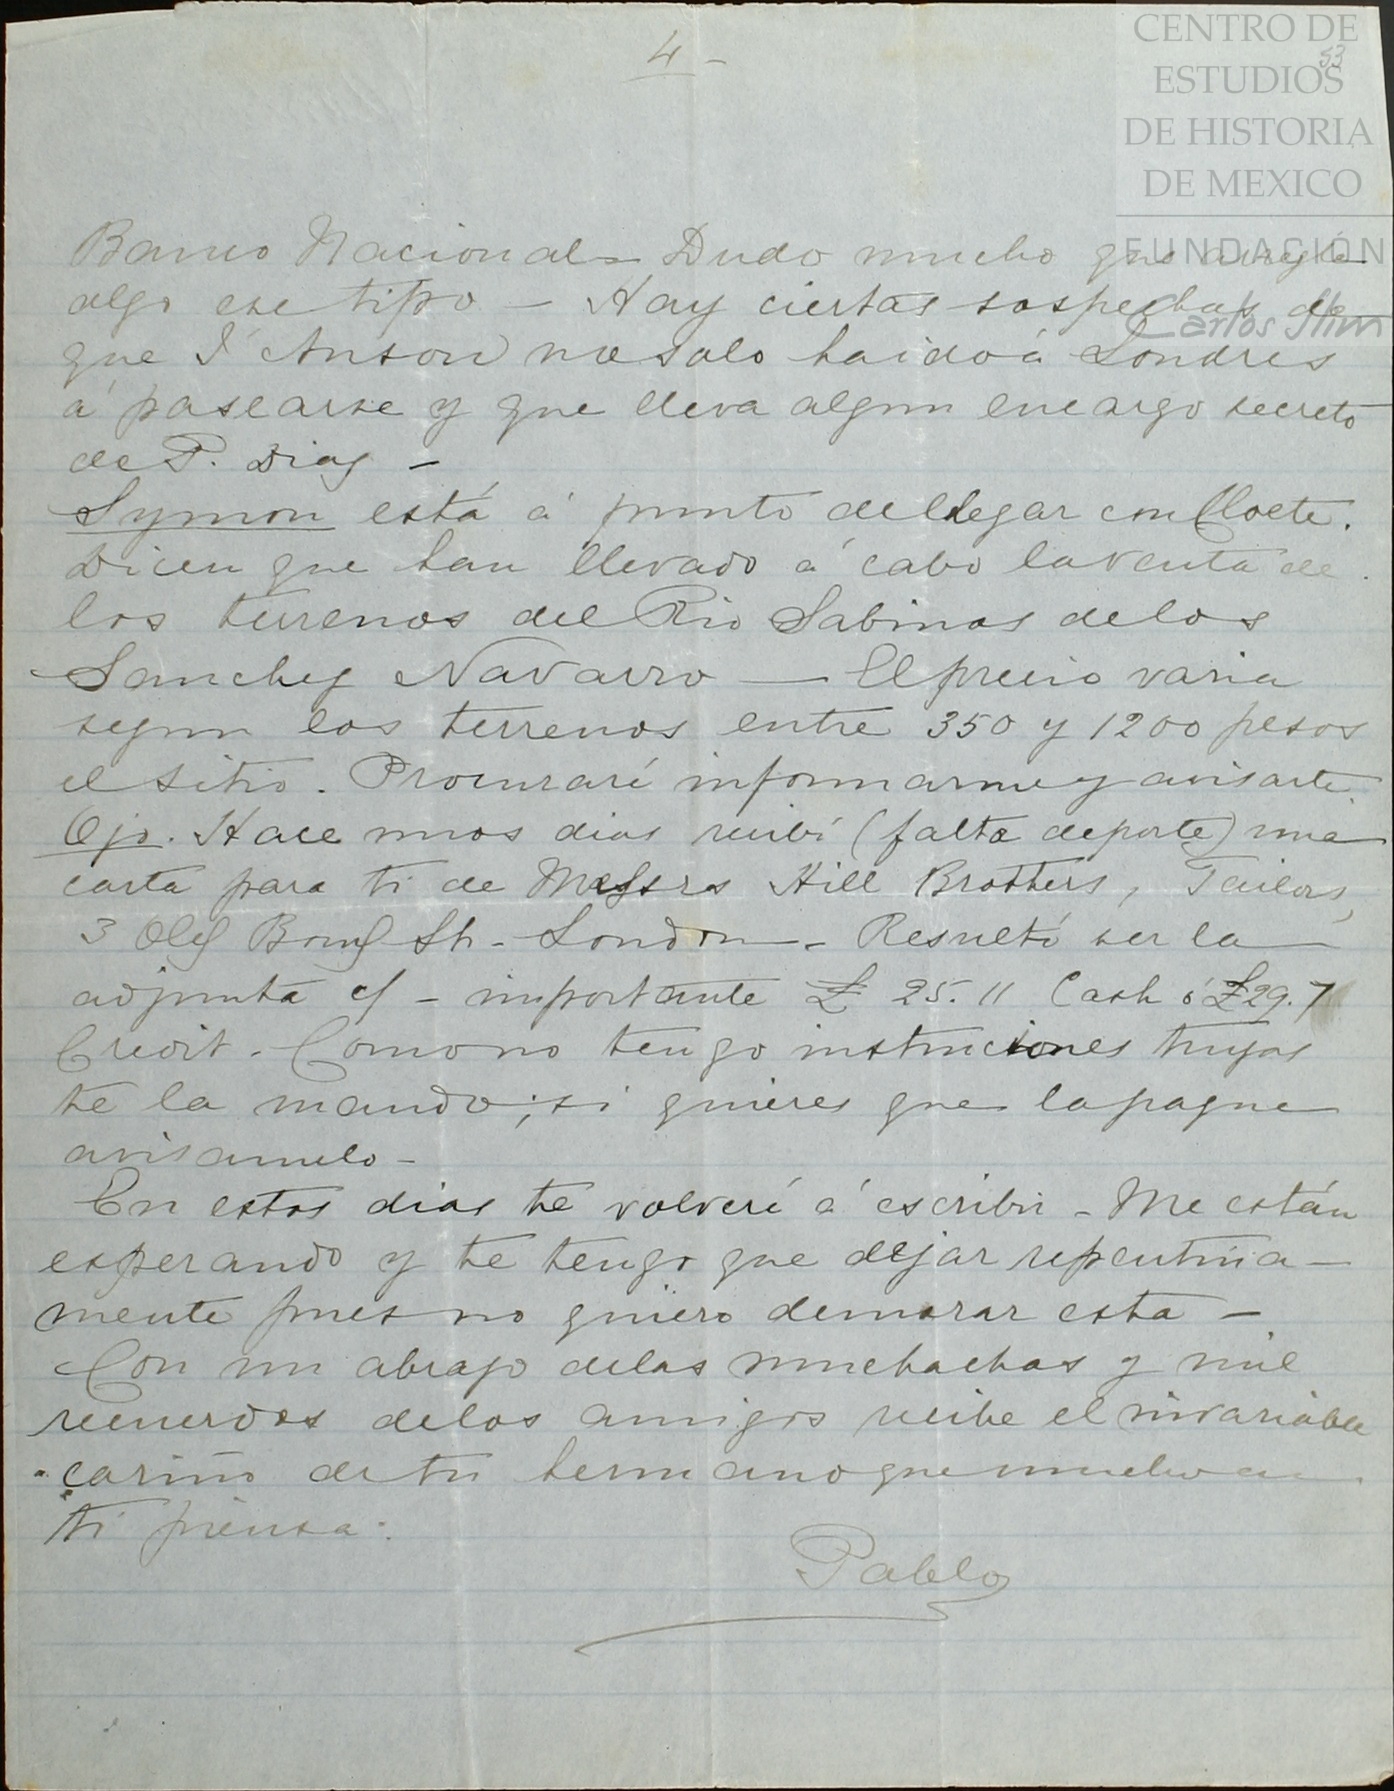 4 -
53
CENTRO DE
ESTUDIOS
DE HISTORIA
DE MEXICO
FUNDACIÓN
Carlos Slim
Banco Nacional - Dudo mucho que arregle
algo ese tipo - Hay ciertas sospechas de
que I'Anson no solo ha ido á Londres
á pasearse y que lleva algun encargo secreto
de P. Diaz -
Symon está á punto de llegar con Cloete.
Dicen que han llevado á cabo la venta de
los terrenos del Rio Sabinas de los
Sanchez Navarro — El precio varia
segun los terrenos entre 350 y 1200 pesos
el sitio. Procuraré informarme y avisarte
Ojo. Hace unos dias recibí (falta de porte) una
carta para ti de Messrs Hill Brothers, Tailors,
3 Old Bond St. - London - Resultó ser la
adjunta c/ - importante £ 25.11 Cash ó £29.7
Credit. Como no tengo instruciones tuyas
te la mando; si quieres que la pague
avisamelo -
En estos dias te volveré á escribir - Me están
esperando y te tengo que dejar repentina-
mente pues no quiero demorar esta -
Con un abrazo de las muchachas y mil
recuerdos de los amigos recibe el invariable
cariño de tu hermano que mucho en
ti piensa.
Pablo